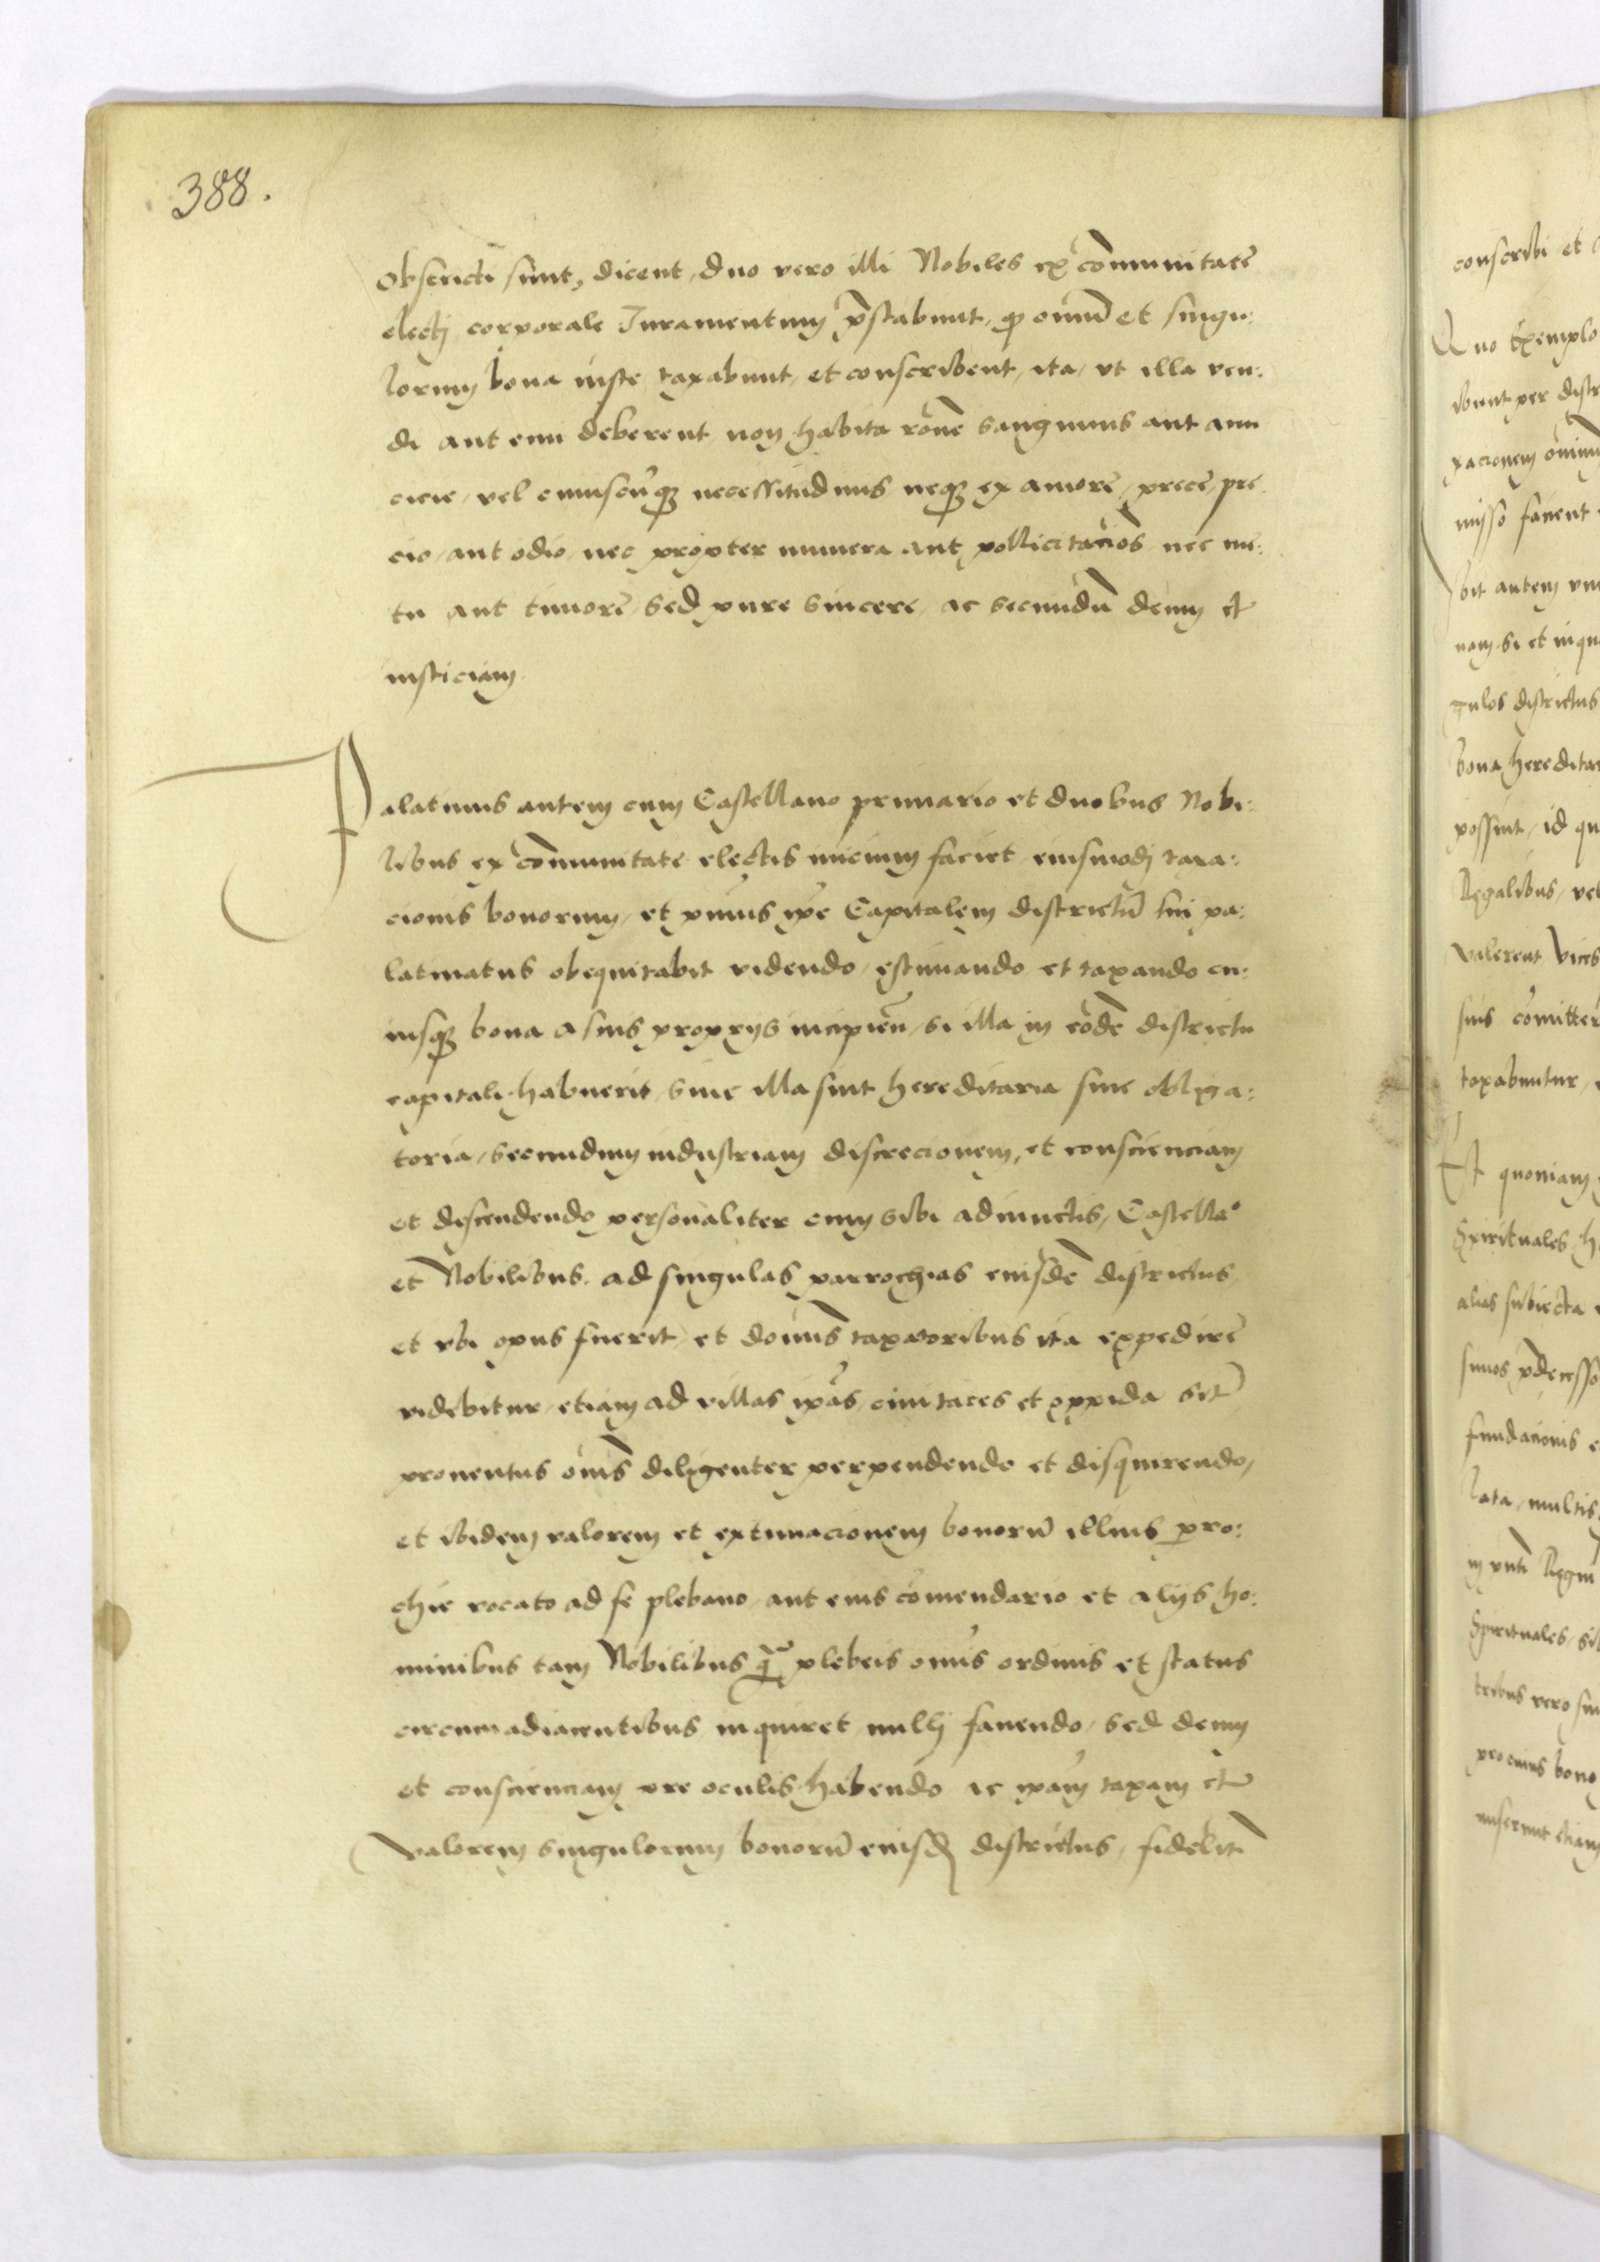 388.
obstricti sunt, dicent, duo vero illi Nobiles ex cōmunitatē
electj corporale Juramentum p̄stabunt, qꝫ omniū et singu:
lorum bona iuste taxabunt, et conscribent, ita, vt illa ven:
di aut emi deberent non habita rōne sanguinis aut ami
cicie, vel cuiuscūqꝫ necessitudinis neqꝫ ex amore, prece, pre
cio, aut odio, nec propter munera aut pollicitaciōs nec me:
tu aut timore sed pure sincere, ac secundū deum et
insticiam.
Palatinus autem cum Castellano primario et duobus Nobi:
libus ex cōmunitate electis inicium faciet eiusmodj taxa:
cionis bonorum, et primus ip̄e Capitalem districtū sui pa:
latinatus obequitabit videndo, estimando et taxando cu:
iusqꝫ bona a suis proprijs incipień, si illa in eōdē districtu
capitali habuerit, siue illa sint hereditaria siue obliga:
toria, secundum industriam discrecionem, et conscienciam
et descendendo personaliter cum sibi adiunctis, Castellaº
et Nobilibus, ad singulas parrochias eiusdē districtus,
et vbi opus fuerit, et dominis taxatoribus ita expedirē
videbitur, etiam ad villas ip̄as, ciuitates et oppida sit̄
prouentus ōmīs diligenter perpendendo et disquirendo,
et ibidem valorem et extimacionem bonorū illius paro:
chie vocato ad se plebano, aut eius cōmendario et alijs ho:
minibus tam Nobilibus q̄ plebeis omīs ordinis et status
circumadiacentibus inquiret nullj fauendo, sed deum
et conscienciam pre oculis habendo ac ip̄am taxam et
valorem singulorum bonorū eiusd districtus, fidelit̄
conscribi et
Quo Exemplo
ibunt per distr
xacionem omnium
misso facient
bit autem vn
nam si et inqu
gulos districtus
bona hereditar
possint, id qu
Regalibus, vel
valerent vices
suis cōmitter
taxabuntur,
Et quoniam
Spirituales h
alias subiecta
suos p̄decesso
fundacionis e
lata, multis
Regni
Spirituales, si
tribus vero su
pro cuius bono
miserunt etiam